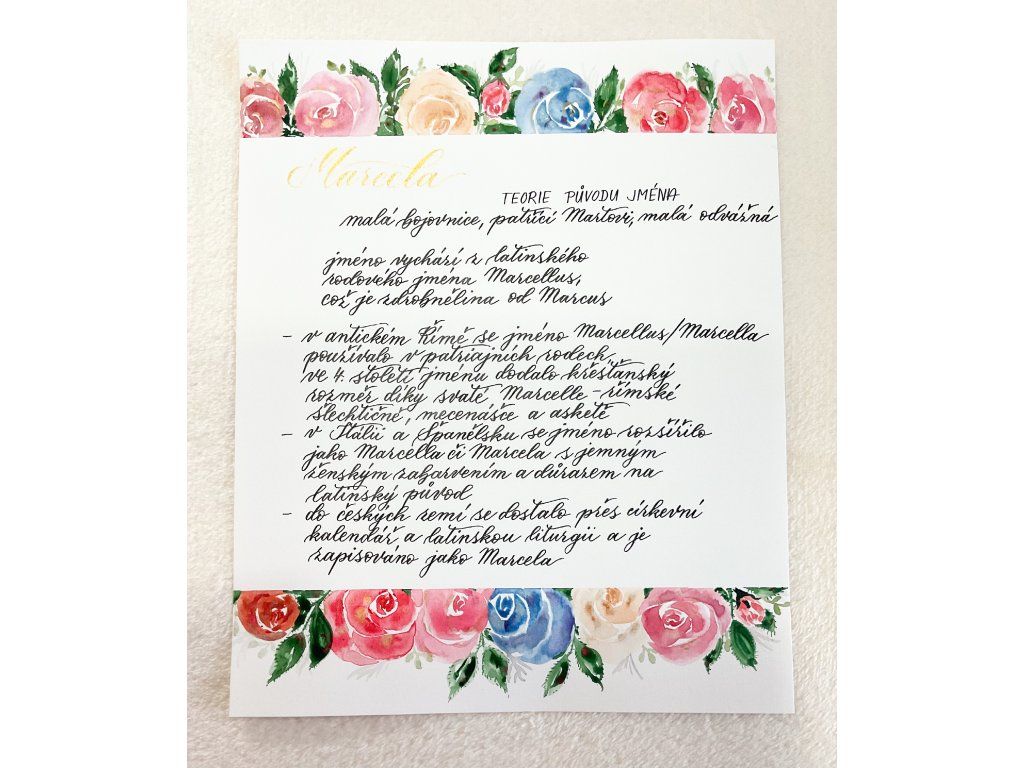 Marcela
TEORIE PŮVODU JMÉNA
malá bojovnice, patřící Martovi, malá odvážná
jméno vychází z latinského
rodového jména Marcellus,
což je zdrobnělina od Marcus
- v antickém Římě se jméno Marcellus/Marcella
používalo v patriajních rodech,
ve 4. století jménu dodalo křesťanský
rozměr díky svaté Marcelle - římské
šlechtičně, mecenášce a asketě
- v Itálii a Španělsku se jméno rozšířilo
jako Marcella či Marcela s jemným
ženským zabarvením a důrazem na
latinský původ
- do českých zemí se dostalo přes církevní
kalendář a latinskou liturgii a je
zapisováno jako Marcela